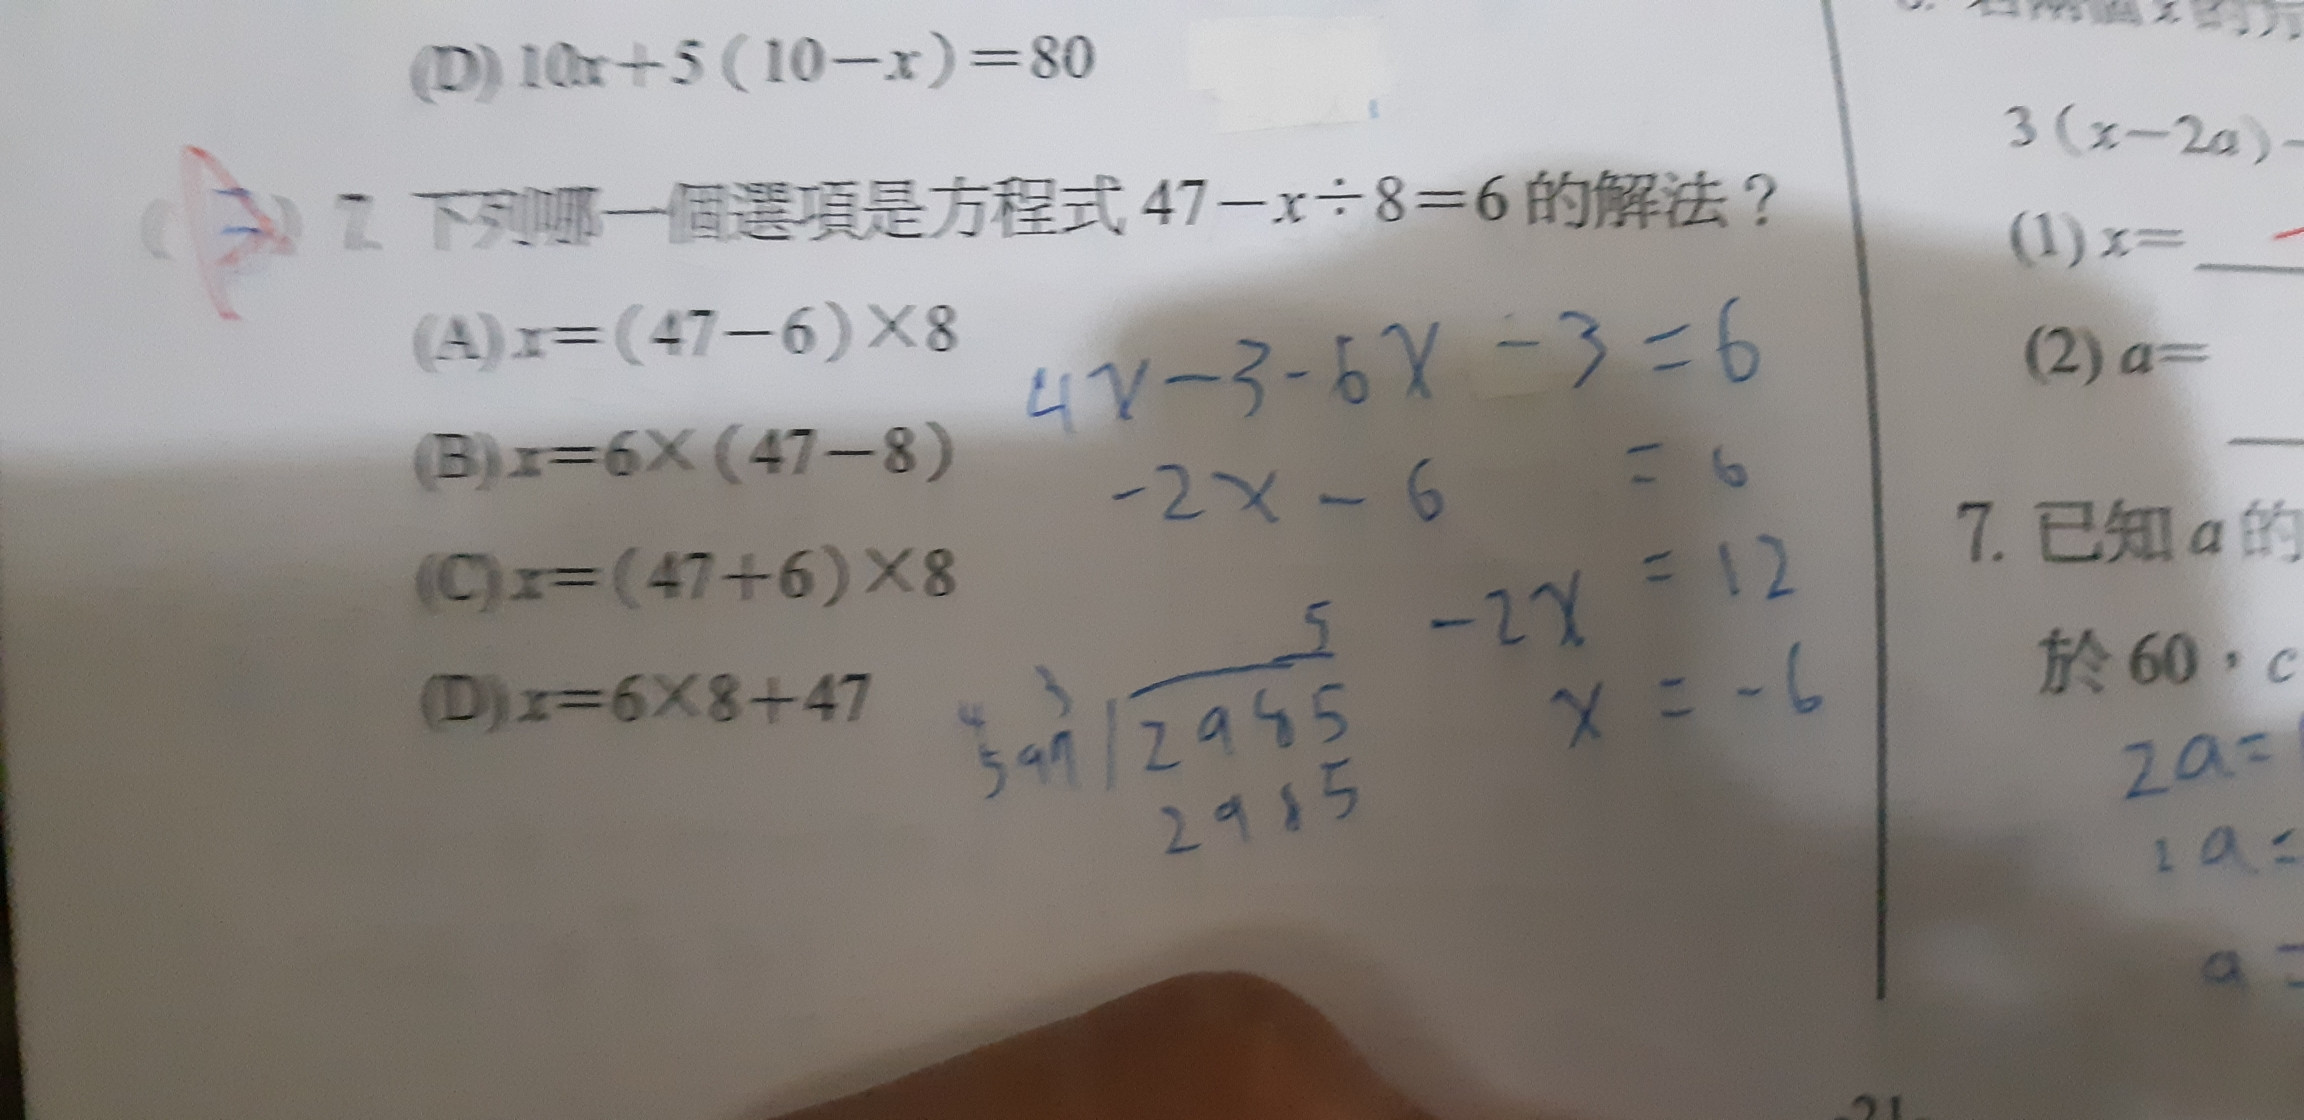 (D) 10x+5(10-x)=80
下列哪一個選項是方程式 47-x÷8=6 的解法？
(A) x=(47-6)×8
(B) x=6×(47-8)
(C) x=(47+6)×8
(D) x=6×8+47
4x-3-6x-3=6
-2x-6 =6
-2x =12
x = -6
5
4 3
597 2985
2985
3(x-2a)-
(1) x=
(2) a=
7. 已知 a 的
於 60，c
2a=
a=
-21-